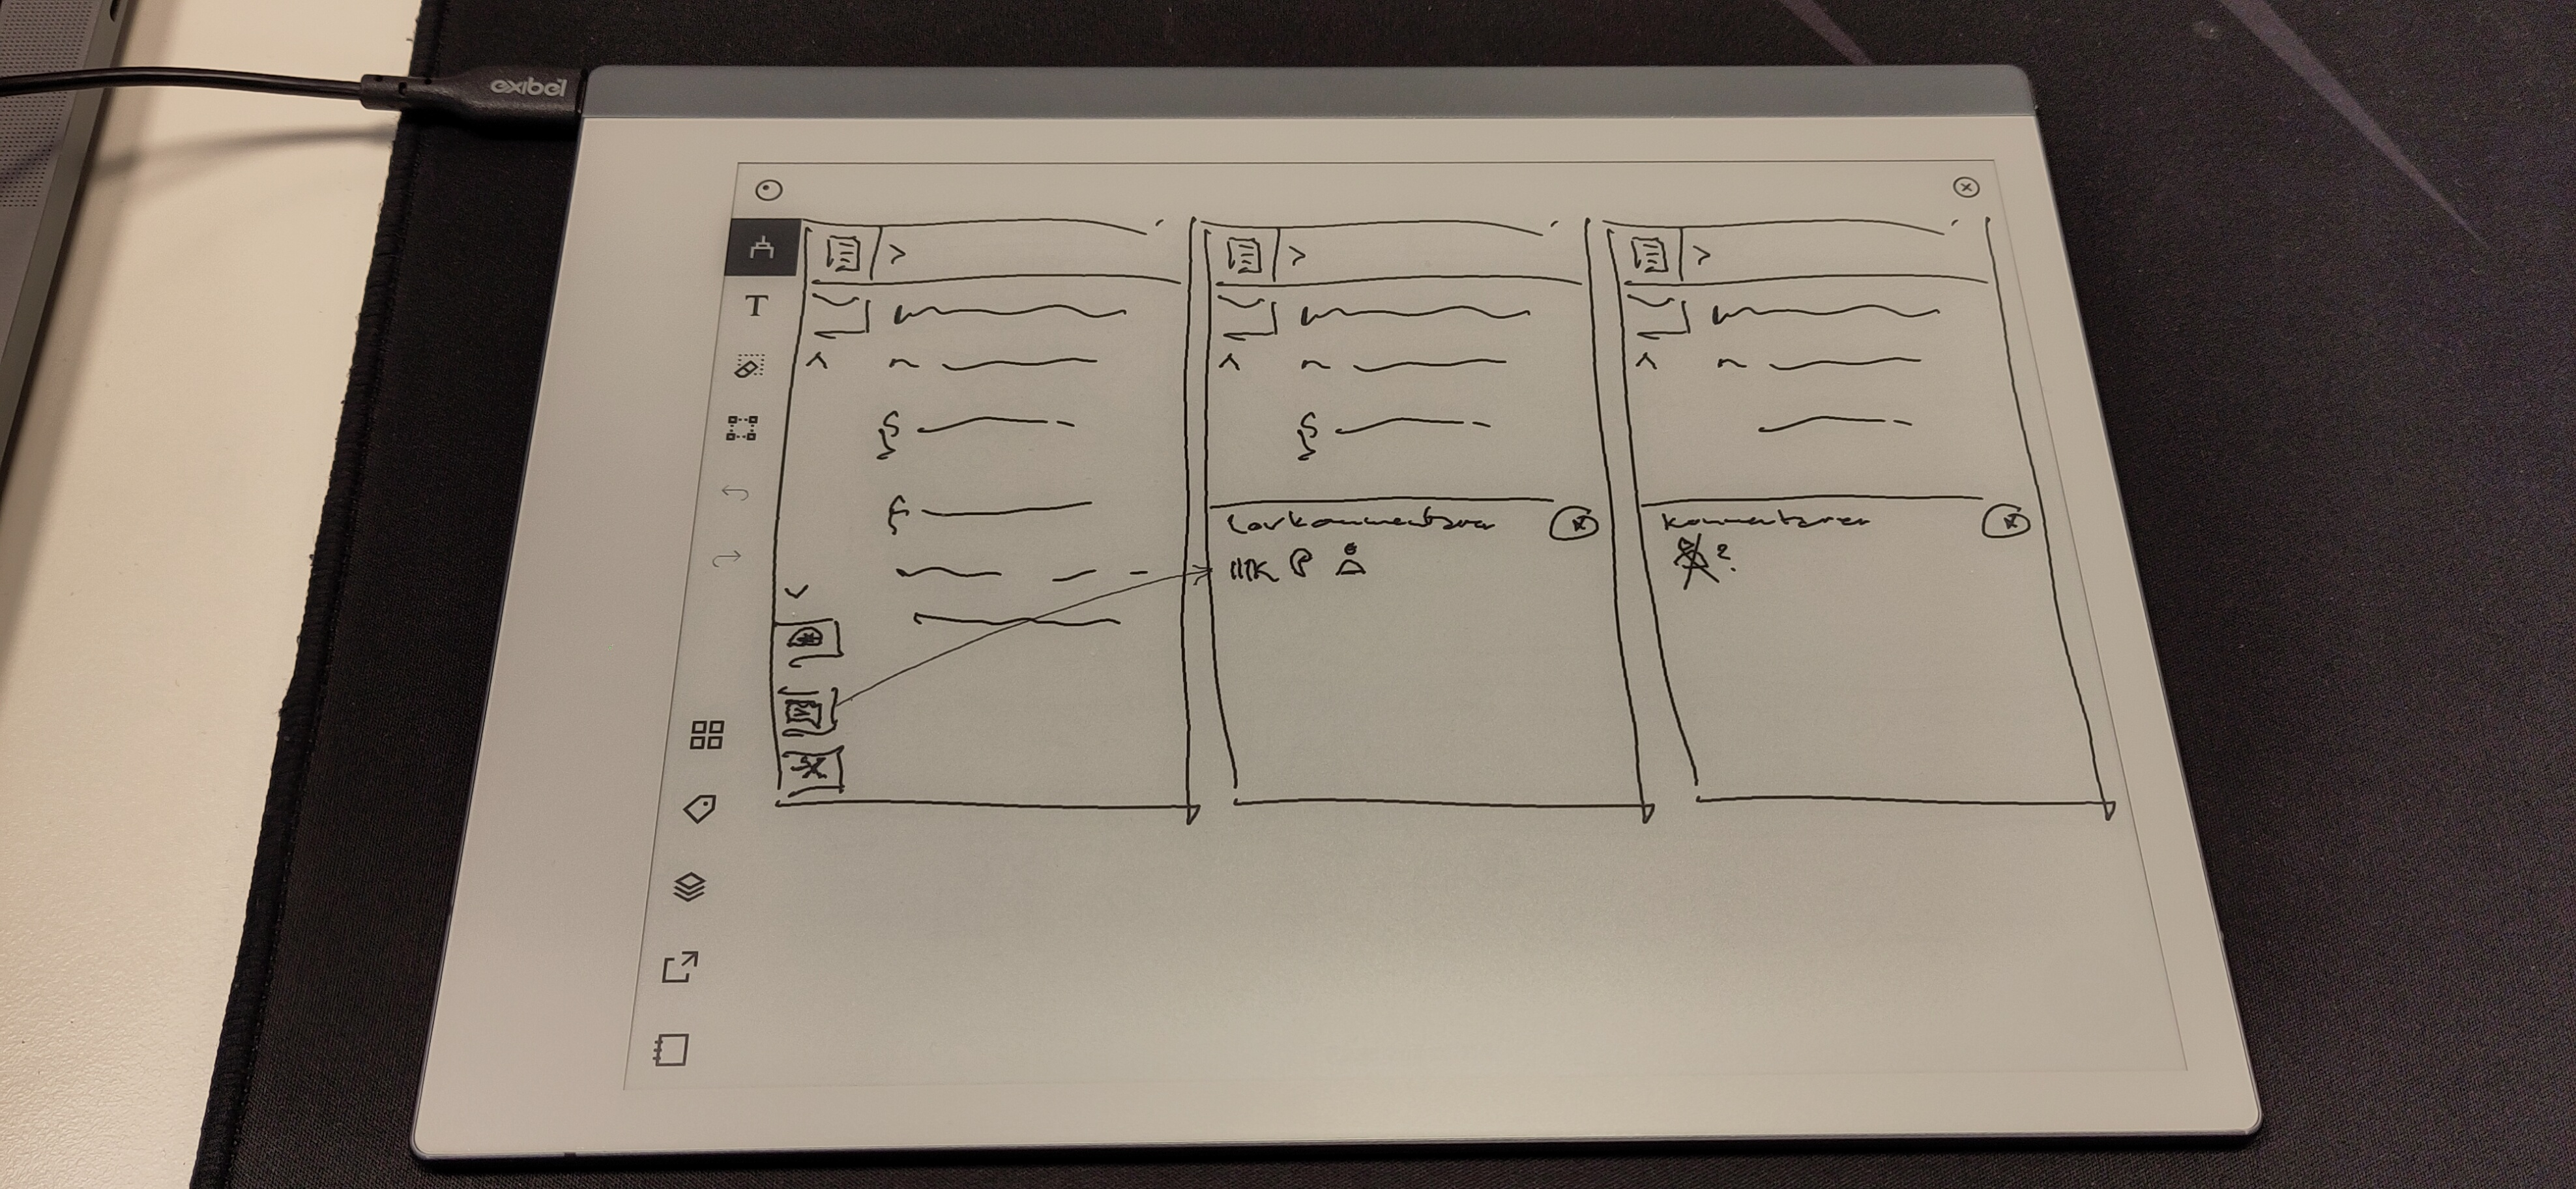 exibel
T
>
>
>
§
§
§
Lovkommentarer
Kommentarer
?